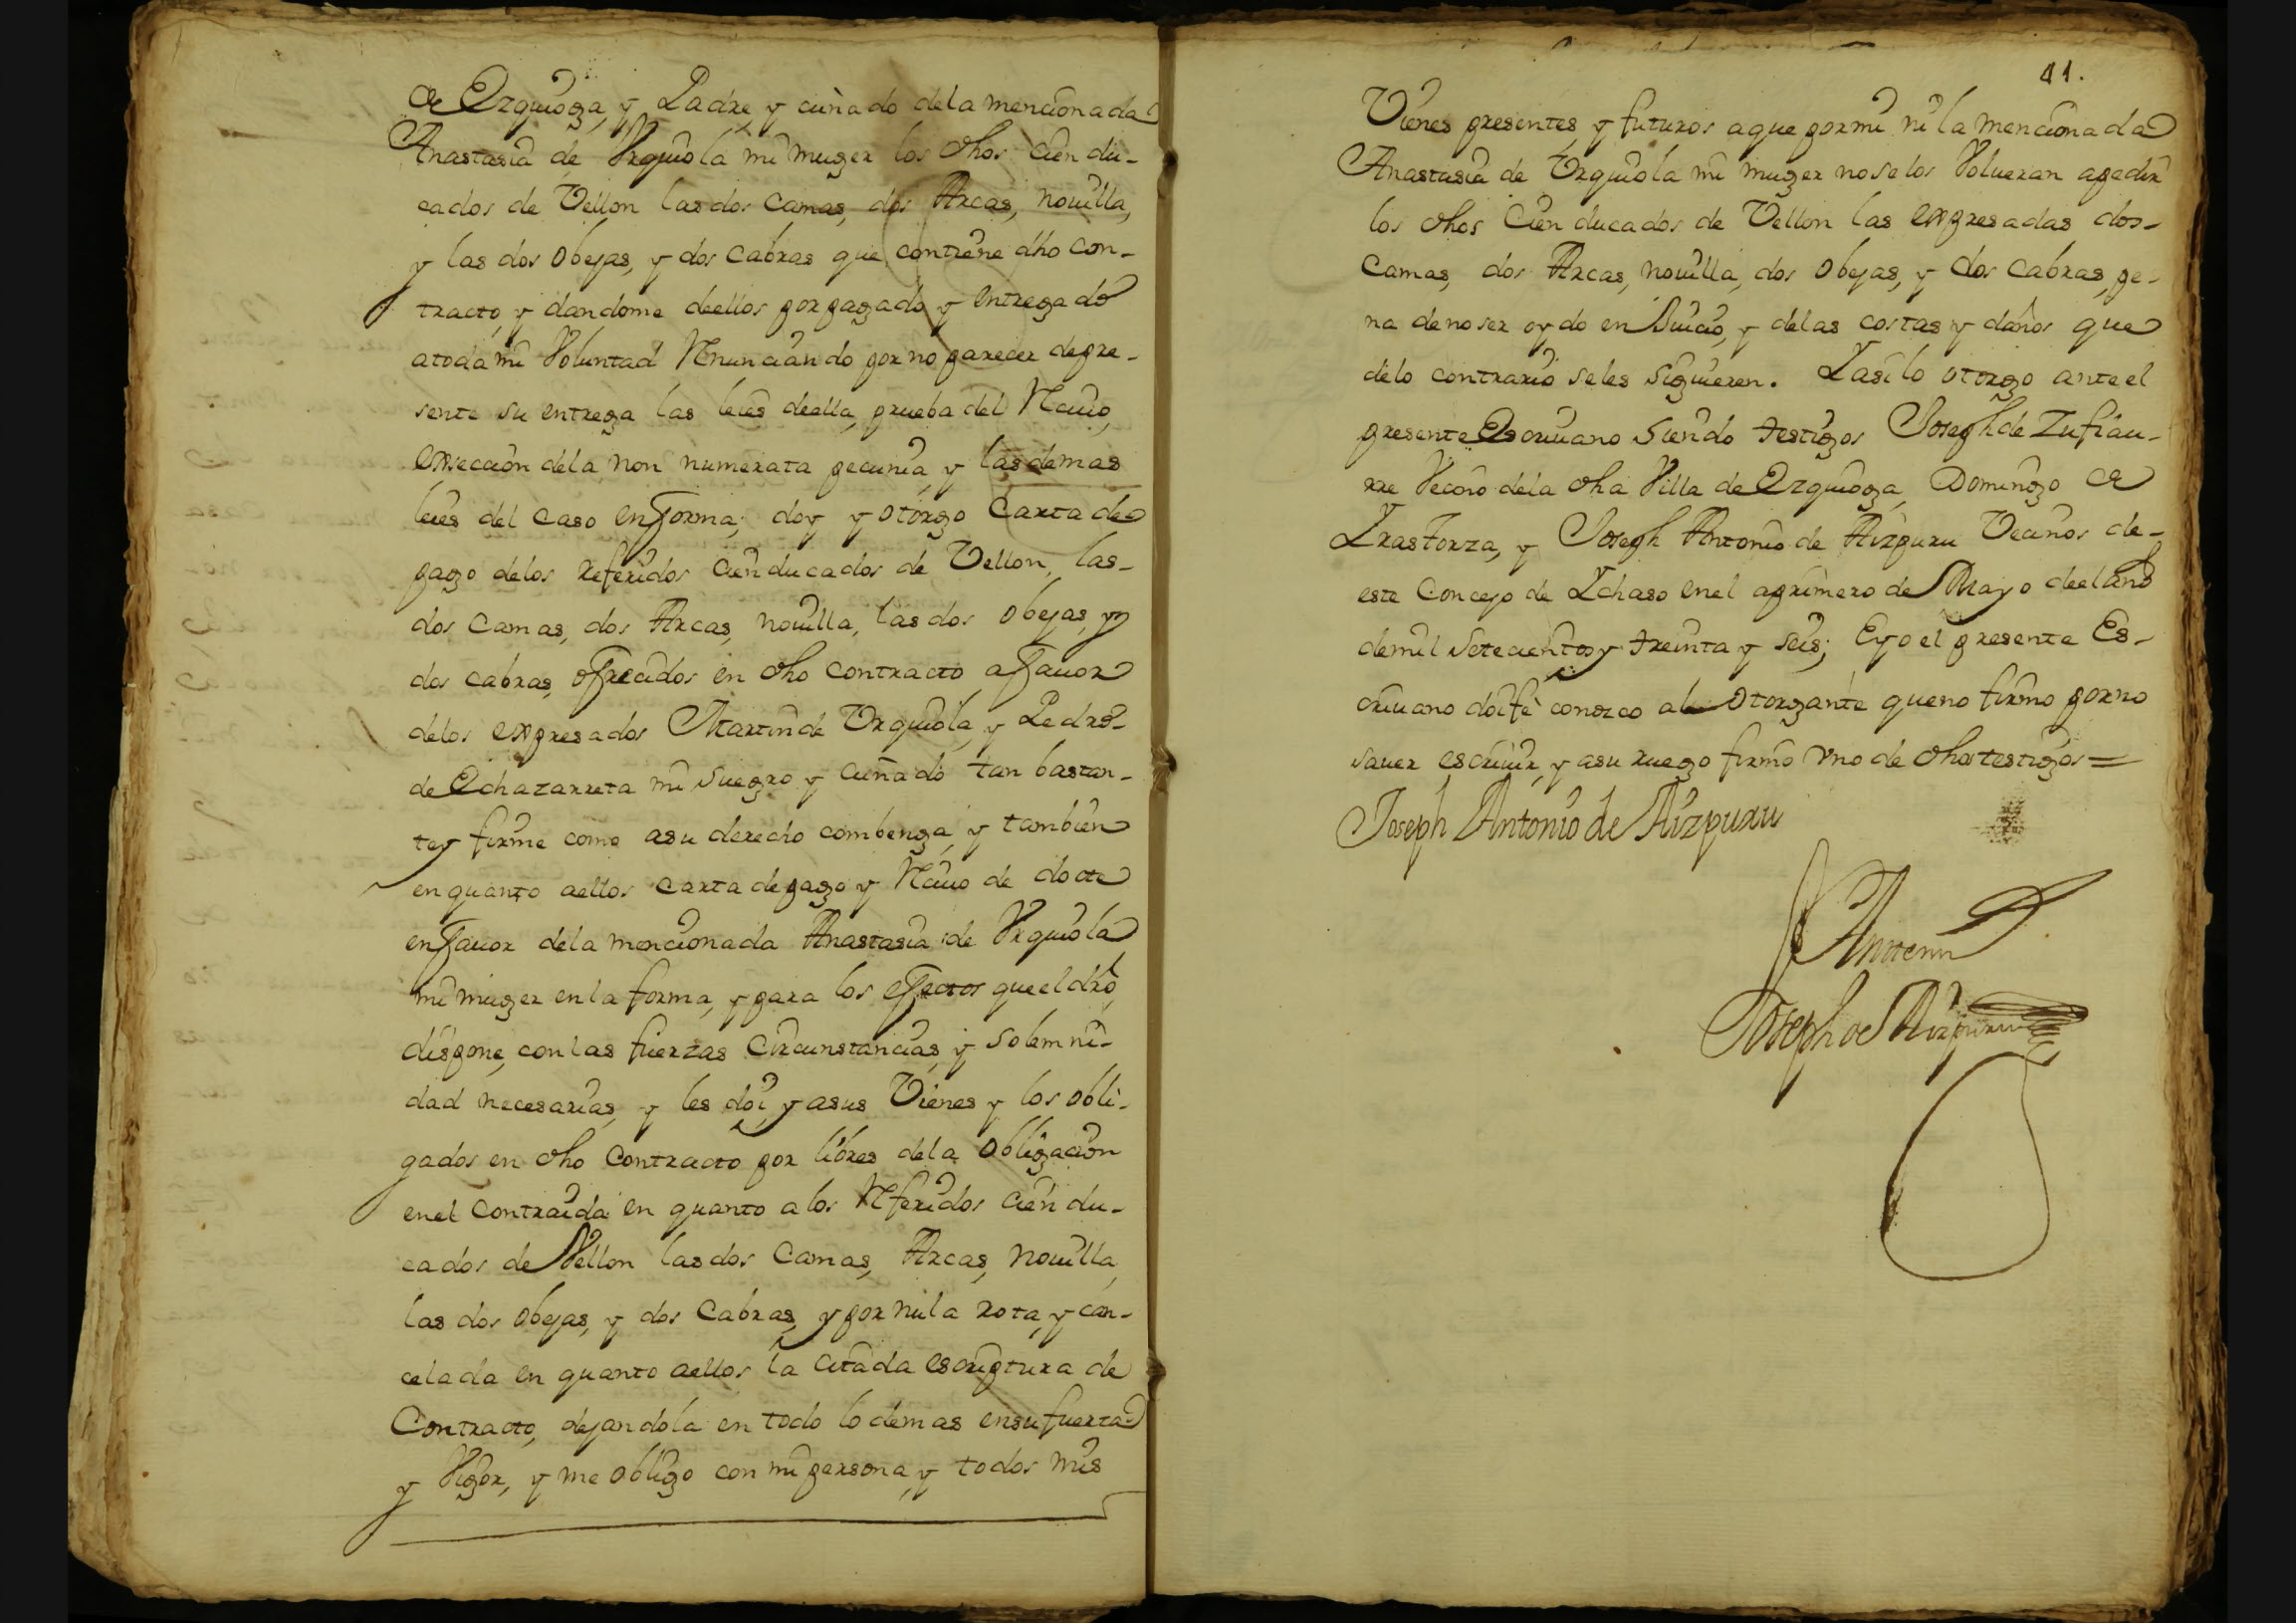 de Ezquioga, y Padre, y cuñado dela mencionada
Anastasia de Vrquiola mi muger los dhos cien du-
cados de Vellon las dos Camas, dos Arcas, nouilla,
y las dos obejas, y dos Cabras que contiene dho con-
tracto, y dandome deellos por pagado, y entregado
atoda mi Voluntad Renunciando por no parecer depre-
sente su entrega las leies deella, prueba del Reciuo,
exsección dela non numerata pecunia, y las demas
leies del Caso enforma; doy y otorgo Carta de
pago delos referidos cien ducados de Vellon, las-
dos Camas, dos Arcas, nouilla, las dos obejas, y
dos cabras, ofrecidos en dho contracto affauor
delos expresados Martin de Vrquiola, y Pedro-
de Echazarreta mi suegro y cuñado tan bastan-
te y firme como asu derecho combenga, y tambien
en quanto aellos carta de pago y Reciuo de docte
enfauor dela mencionada Anastasia de Vrquiola
mi muger en la forma, y para los efectos que el dro,
dispone, con las fuerzas Circunstancias, y solemni-
dad necesarias, y les doi, y asus Vienes y los obli-
gados en dho Contracto por libres dela obligacion
enel Contraida en quanto a los Referidos cien du-
cados de Vellon las dos Camas, Arcas, nouilla,
las dos obejas, y dos Cabras, y por nula rota, y can-
celada en quanto aellos la citada escriptura de
Contracto, dejandola en todo lo demas ensu fuerza
y Vigor, y me obligo con mi persona, y todos mis
41.
Vienes presentes, y futuros aque por mi ni la mencionada
Anastasia de Vrquiola mi muger no se los Volueran apedir
los dhos Cien ducados de Vellon las expresadas dos-
Camas, dos Arcas, nouilla, dos obejas, y dos cabras, pe-
na de no ser oydo en Juicio, y delas costas y daños que
delo contrario se les siguieren. Y asi lo otorgo ante el
presente Escriuano siendo testigos Joseph de Zufiau-
rre Vecino dela dha Villa de Ezquioga, Domingo de
Yrastorza, y Joseph Antonio de Aizpuru Vecinos de-
este Concejo de Ychaso enel a primero de Mayo deel año
demil setecientos y treinta y seis; E yo el presente Es-
criuano doi fè conozco al otorgante que no firmo por no
sauer escriuir, y asu ruego firmo vno de dhos testigos =
Joseph Antonio de Aizpuru
Antemi
Joseph de Aizpuru